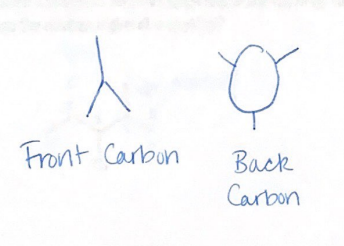 Front Carbon
Back
Carbon